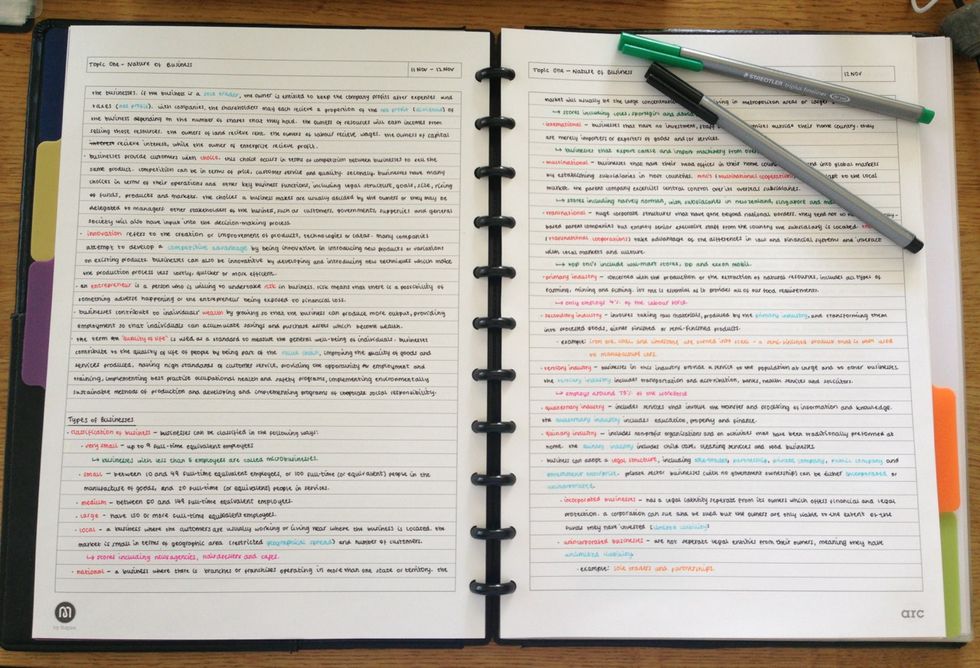 Topic One - Nature of Business
11 Nov - 12 Nov
the businesses. if the business is a sole trader, the owner is entitled to keep the company profits after expenses and
taxes (net profit). with companies, the shareholders may each recieve a proportion of the net profit (dividend) of
the business depending on the number of shares that they hold. the owners of resources will earn incomes from
selling those resources. the owners of land recieve rent. the owners of labour recieve wages. the owners of capital
recieve interest, while the owner of enterprise recieve profit.
· businesses provide customers with choice. this choice occurs in terms of competition between businesses to sell the
same product. competition can be in terms of price, customer service and quality. secondly, businesses have many
choices in terms of their operations and other key business functions, including legal structure, goals, size, pricing
of funds, products and markets. the choices a business makes are usually decided by the owners or they may be
delegated to managers. other stakeholders of the business, such as customers, governments, suppliers and general
society will also have input into the decision-making process.
· innovation refers to the creation or improvement of products, technologies or ideas. many companies
attempt to develop a competitive advantage by being innovative in introducing new products or variations
on existing products. businesses can also be innovative by developing and introducing new techniques which make
the production process less costly, quicker or more efficient.
· an entrepreneur is a person who is willing to undertake risk in business. risk means that there is a possibility of
something adverse happening or the entrepreneur being exposed to financial loss.
· businesses contribute to individuals' wealth by growing so that the business can produce more output, providing
employment so that individuals can accumulate savings and purchase assets which become wealth.
· the term on "quality of life" is used as a standard to measure the general well-being of individuals. businesses
contribute to the quality of life of people by being part of the value chain, improving the quality of goods and
services produced, having high standards of customer service, providing the opportunity for employment and
training, implementing best practice occupational health and safety programs, implementing environmentally
sustainable methods of production and developing and implementing programs of corporate social responsibility.
Types of Businesses
· classification of business - businesses can be classified in the following ways:
· very small - up to 9 full-time equivalent employees
↳ businesses with less than 5 employees are called microbusinesses.
· small - between 10 and 49 full-time equivalent employees, or 100 full-time (or equivalent) people in the
manufacture of goods, and 20 full-time (or equivalent) people in services.
· medium - between 50 and 149 full-time equivalent employees.
· large - have 150 or more full-time equivalent employees.
· local - a business where the customers are usually working or living near where the business is located. the
market is small in terms of geographic area (restricted geographical spread) and number of customers.
↳ stores including newsagencies, hairdressers and cafes.
· national - a business where there is branches or franchises operating in more than one state or territory. the
Topic One - Nature of Business
12 Nov
market will usually be the large concentration living in metropolitan areas or larger
↳ stores including coles, sportsgirl and
· international - businesses that have no investment, staff outside their home country. they
are merely importers or exporters of goods and/or services.
↳ businesses that export cattle and import machinery from
· multinational - businesses that have their head offices in their home country and into global markets
by establishing subsidiaries in host countries. mnc's (multinational cooperations) to the local
market. the parent company exercises central control over its overseas subsidiaries.
↳ stores including harvey norman, with subsidiaries in new zealand, singapore and
· transnational - huge corporate structures that have gone beyond national borders. they tend not to
based parent companies but employ senior executive staff from the country the subsidiary is located.
(transnational corporations) take advantage of the differences in law and financial systems and interact
with local markets and culture.
↳ top tnc's include wal-mart stores, bp and exxon mobil.
· primary industry - concerned with the production or the extraction of natural resources, includes all types of
farming, mining and fishing. it is essential as it provides all of our food requirements.
↳ only employs 4% of the labour force.
· secondary industry - involves taking raw materials, produced by the primary industry, and transforming them
into processed goods, either finished or semi-finished products.
· example: iron ore, coal and limestone are turned into steel - a semi-finished product that is then used
to manufacture cars.
· tertiary industry - businesses in this industry provide a service to the population at large and to other businesses.
the tertiary industry includes transportation and distribution, banks, health services and solicitors.
↳ employs around 75% of the workforce
· quaternary industry - includes services that involve the transfer and processing of information and knowledge.
the quaternary industry includes education, property and finance.
· quinary industry - includes nonprofit organisations and on activities that have been traditionally preformed at
home. the quinary industry includes child care, cleaning services and food businesses.
· business can adopt a legal structure, including sole trader, partnership, private company, public company and
government enterprise. private sector businesses (with no government ownership) can be either incorporated or
unincorporated.
· incorporated businesses - has a legal identity seperate from its owners which offers financial and legal
protection. a corporation can sue and be sued but the owners are only liable to the extent of the
funds they have invested (limited liability).
· unincorporated businesses - are not seperate legal entities from their owners, meaning they have
unlimited liability.
· example: sole traders and partnerships.
arc
STAEDTLER triplus fineliner